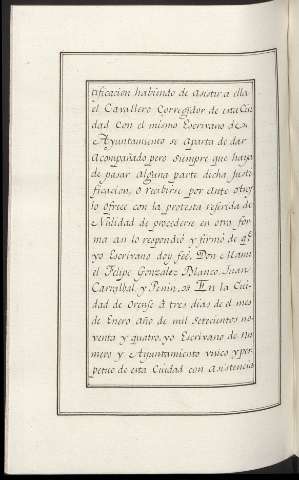 tificacion habiendo de asistir a ella
el Cavallero Corregidor de esta Ciu
dad con el mismo Escrivano de
Ayuntamiento se aparta de dar
Acompañado pero siempre que haya
de pasar alguna parte dicha Justi
ficacion, o recibirse por ante otro,
lo ofrece con la protesta referida de
Nulidad de procederse en otra for
ma asi lo respondió y firmó de qe.
yo Escrivano doy feé. Don Manu
el Felipe Gonzalez Blanco. Juan
Carvalbal y Penin. En la Ciu
dad de Orense á tres dias de el mes
de Enero año de mil setecientos no
venta y quatro, yo Escrivano de Nu
mero y Ayuntamiento unico y per
petuo de esta Ciudad con asistencia